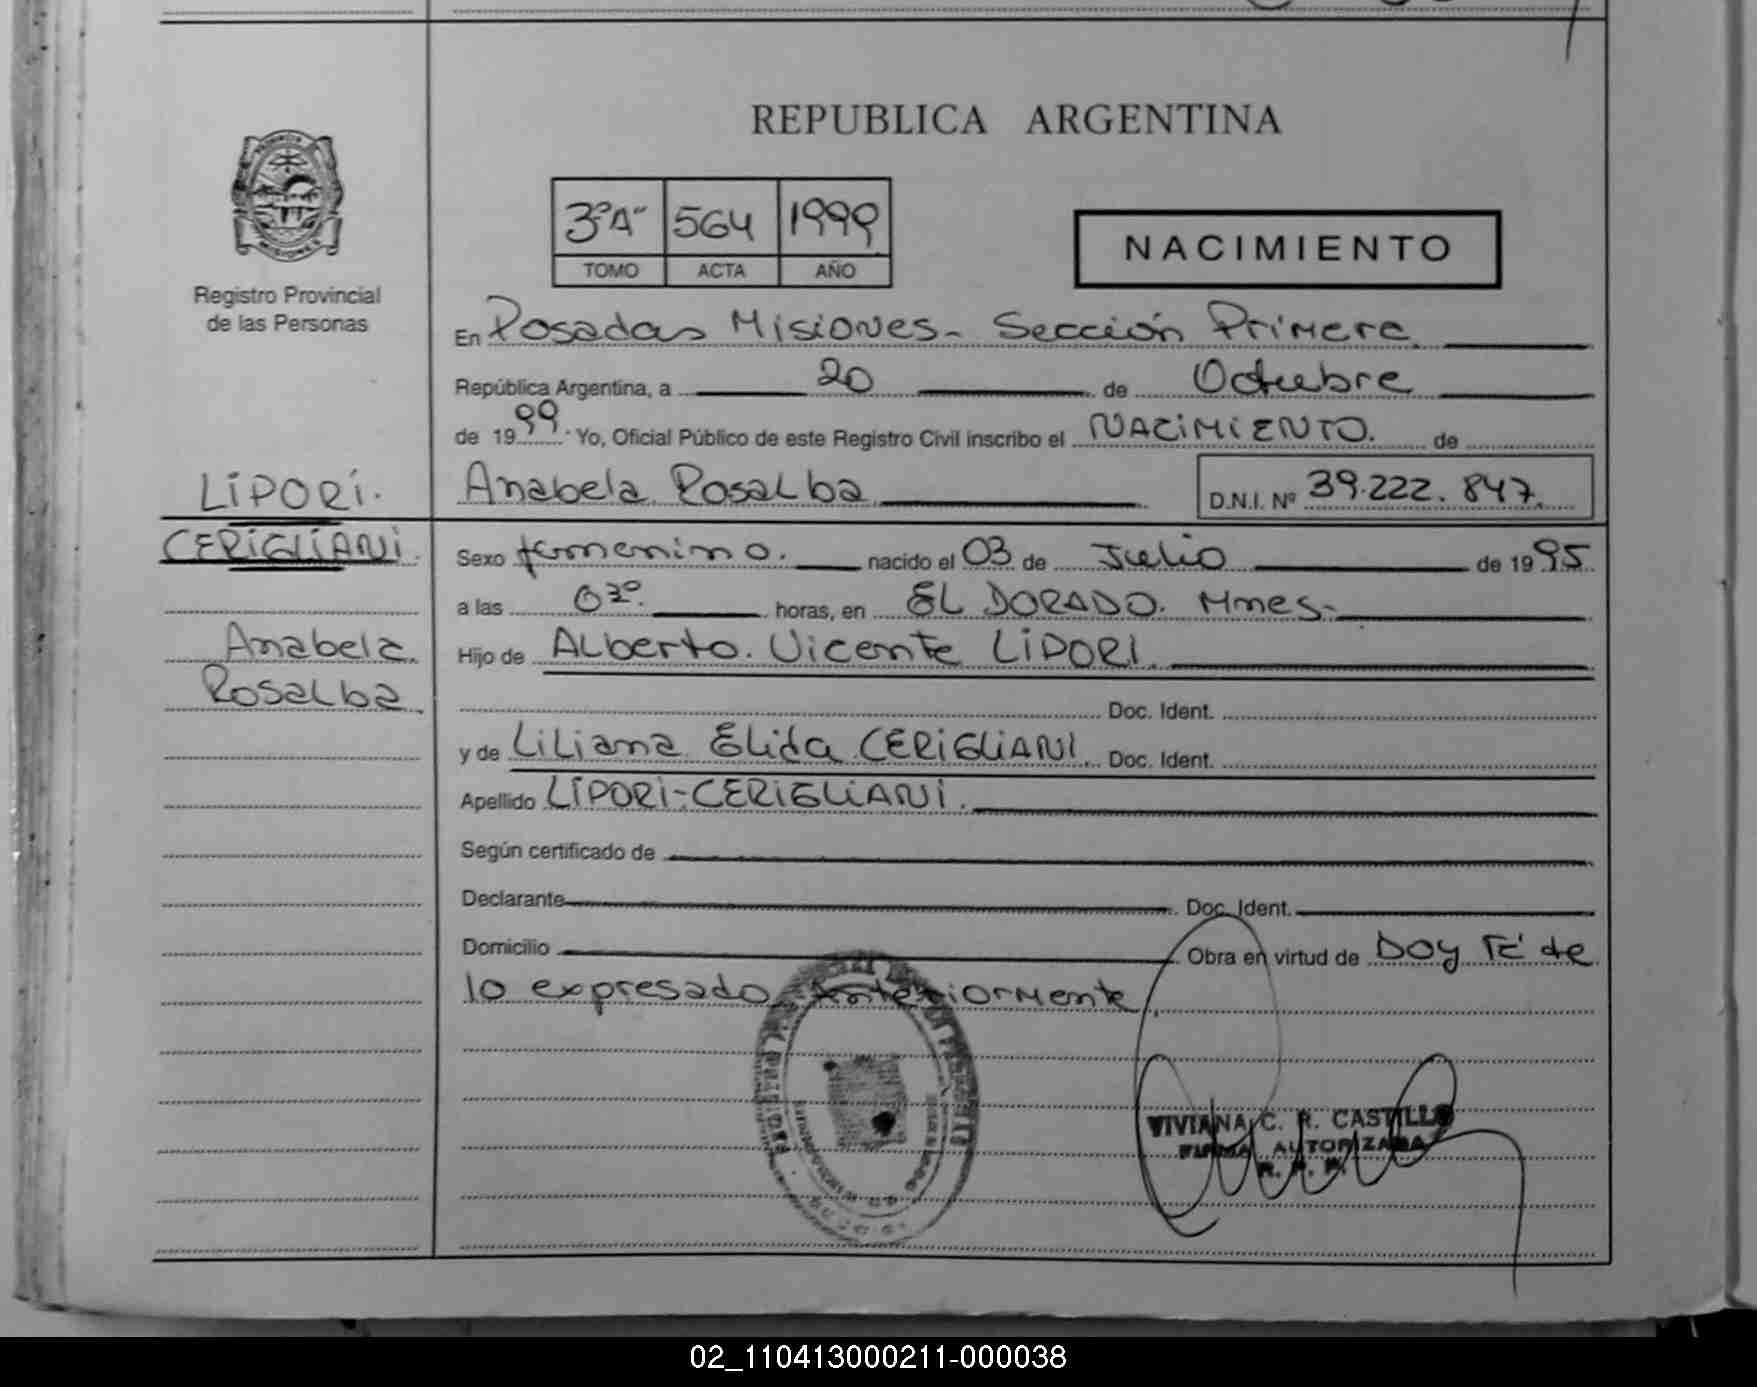 REPUBLICA ARGENTINA
3º"A" 564 1999
TOMO ACTA AÑO
NACIMIENTO
Registro Provincial
de las Personas
En Posadas Misiones - Sección Primera
República Argentina, a 20 de Octubre
de 1999 Yo, Oficial Público de este Registro Civil inscribo el NACIMIENTO. de
Anabela Rosalba D.N.I. Nº 39.222.847
LIPORI.
CERIGLIANI.
Anabela
Rosalba
Sexo femenino. nacido el 03 de Julio de 1995
a las 03º. horas, en EL DORADO. Mnes-
Hijo de Alberto. Vicente LIPORI
Doc. Ident.
y de Liliana Elida CERIGLIANI Doc. Ident.
Apellido LIPORI-CERIGLIANI.
Según certificado de
Declarante Doc. Ident.
Domicilio Obra en virtud de Doy Fé de
lo expresado Anteriormente
VIVIANA C. R. CASTILLO
FIRMA AUTORIZADA
R. P. P.
02_110413000211-000038